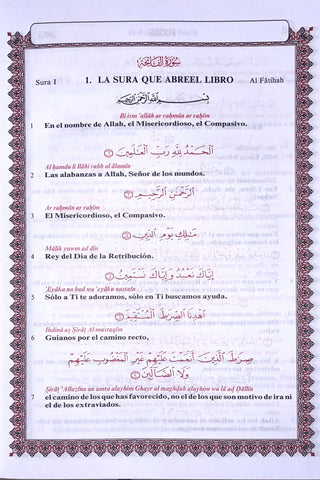 سُورَةُ الْفَاتِحَةِ
Sura 1 1. LA SURA QUE ABREEL LIBRO Al Fātihah
Bi ism 'allāh ar raḥmān ar raḥīm
بِسْمِ اللَّهِ الرَّحْمَنِ الرَّحِيمِ
1 En el nombre de Allah, el Misericordioso, el Compasivo.
الْحَمْدُ لِلَّهِ رَبِّ الْعَالَمِينَ
Al ḥamdu li llāhi rabb al ālamīn
2 Las alabanzas a Allah, Señor de los mundos.
الرَّحْمَنِ الرَّحِيمِ
Ar raḥmān ar raḥīm
3 El Misericordioso, el Compasivo.
مَالِكِ يَوْمِ الدِّينِ
Mālik yawm ad dīn
4 Rey del Dia de la Retribución.
إِيَّاكَ نَعْبُدُ وَإِيَّاكَ نَسْتَعِينُ
'Eyāka na bud wa 'eyāka nastaīn
5 Sólo a Ti te adoramos, sólo en Ti buscamos ayuda.
اهْدِنَا الصِّرَاطَ الْمُسْتَقِيمَ
Ihdinā aṣ Ṣirāṭ Al mustaqīm
6 Guíanos por el camino recto,
صِرَاطَ الَّذِينَ أَنْعَمْتَ عَلَيْهِمْ غَيْرِ الْمَغْضُوبِ عَلَيْهِمْ
وَلَا الضَّالِّينَ
Ṣirāṭ 'Allaẓīna an amta alayhim Ghayr al maghḍub alayhim wa lā aḍ Ḍāllīn
7 el camino de los que has favorecido, no el de los que son motivo de ira ni
el de los extraviados.